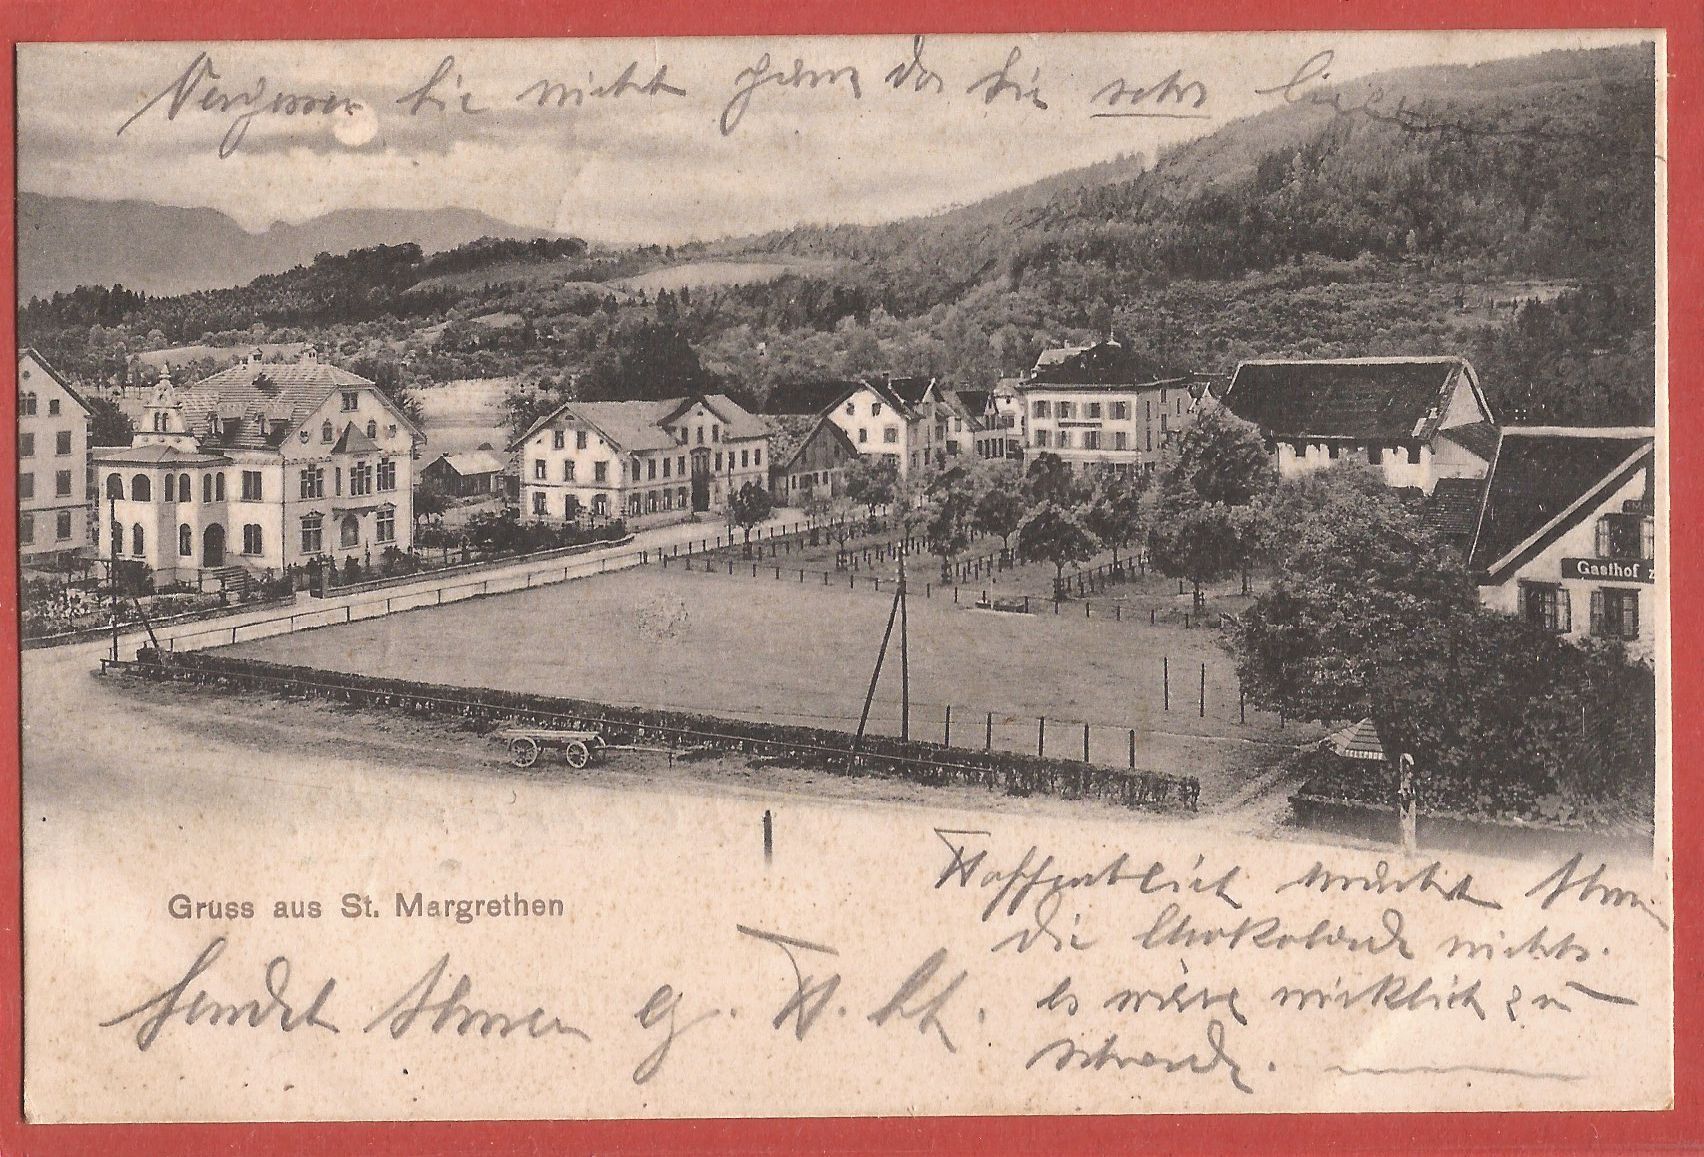 Vergessen Sie nicht ganz das Sie sehr
Gasthof z
TELEPHON
Gruss aus St. Margrethen
Hoffentlich macht Ihnen
die Chokolade nichts.
Es wäre wirklich zu
schade.
Sendet Ihnen